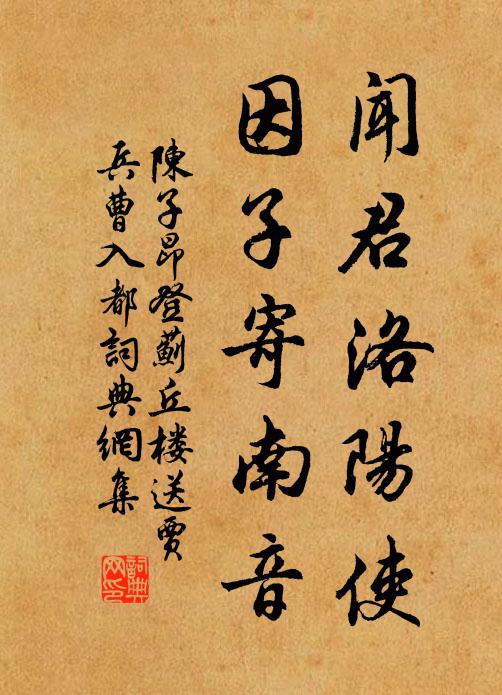 聞君洛陽使
因子寄南音
陳子昂登薊丘楼送賈
兵曹入都詞典網集
詞典
网印